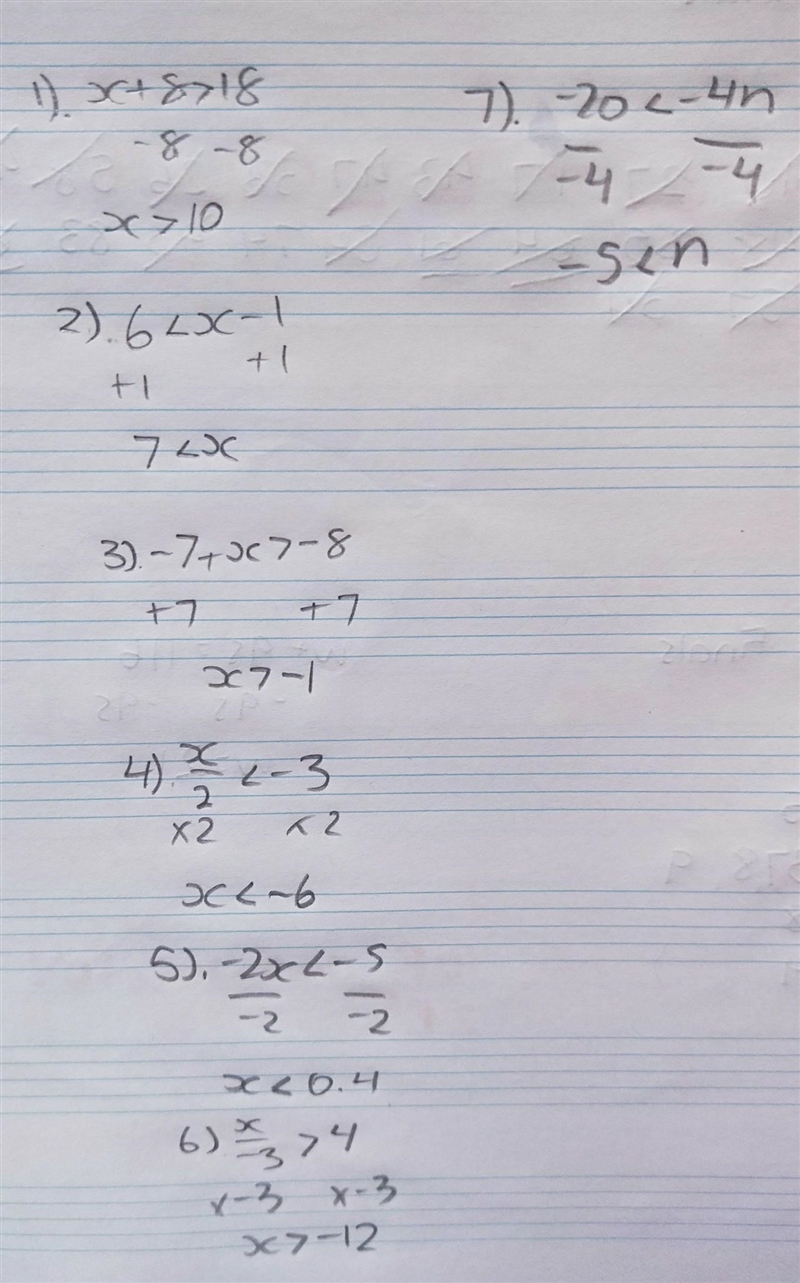 1). x+8>18
-8 -8
x>10
2). 6<x-1
+1 +1
7<x
3). -7+x>-8
+7 +7
x>-1
4). x/2 <-3
×2 ×2
x<-6
5). -2x<-5
-2 -2
x<0.4
6) x/-3 >4
×-3 ×-3
x>-12
7). -20<-4n
-4 -4
-5<n